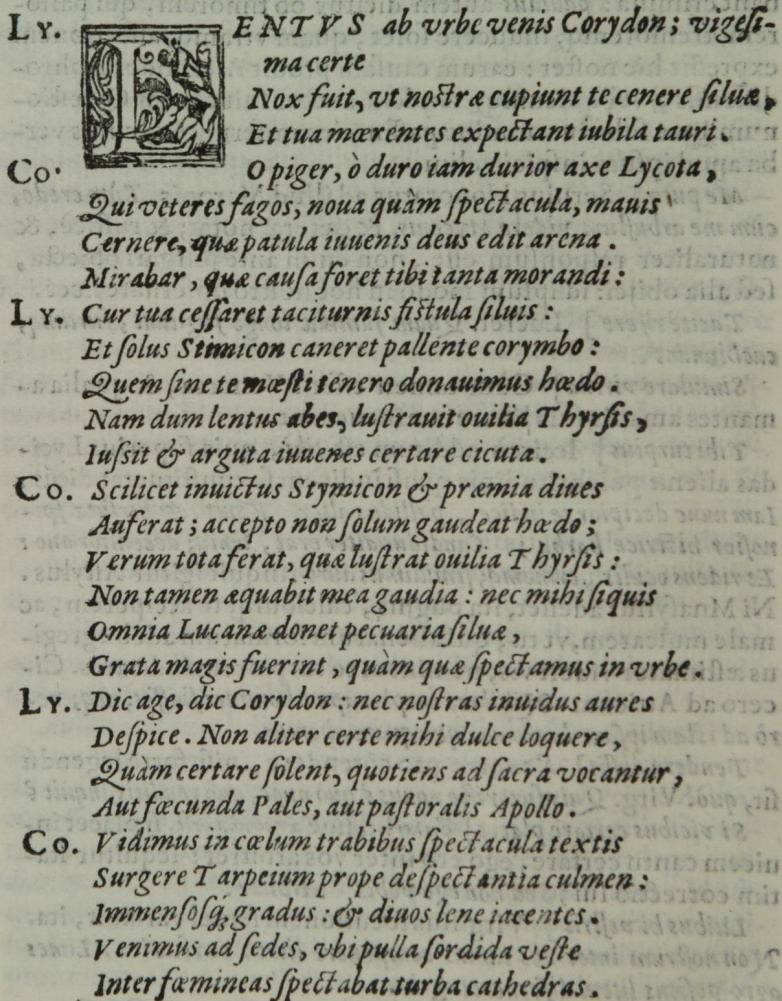 LY. LENTVS ab vrbe venis Corydon; vigeſi-
ma certe
Nox fuit, vt noſtræ cupiunt te cenere ſiluæ,
Et tua mœrentes expectant iubila tauri.
Co. O piger, ò duro iam durior axe Lycota,
Qui veteres fagos, noua quàm ſpectacula, mauis
Cernere, quæ patula iuuenis deus edit arena.
Mirabar, quæ cauſa foret tibi tanta morandi:
LY. Cur tua ceſſaret taciturnis fiſtula ſiluis:
Et ſolus Stimicon caneret pallente corymbo:
Quem ſine te mœſti tenero donauimus hœdo.
Nam dum lentus abes, luſtrauit ouilia Thyrſis,
Iuſsit & arguta iuuenes certare cicuta.
Co. Scilicet inuictus Stymicon & præmia diues
Auferat; accepto non ſolum gaudeat hœdo;
Verum tota ferat, quæ luſtrat ouilia Thyrſis:
Non tamen æquabit mea gaudia: nec mihi ſiquis
Omnia Lucanæ donet pecuaria ſiluæ,
Grata magis fuerint, quàm quæ ſpectamus in vrbe.
LY. Dic age, dic Corydon: nec noſtras inuidus aures
Deſpice. Non aliter certe mihi dulce loquere,
Quàm certare ſolent, quotiens ad ſacra vocantur,
Aut fœcunda Pales, aut paſtoralis Apollo.
Co. Vidimus in cœlum trabibus ſpectacula textis
Surgere Tarpeium prope deſpectantia culmen:
Immenſoſq; gradus: & diuos lene iacentes.
Venimus ad ſedes, vbi pulla ſordida veſte
Inter fœmineas ſpectabat turba cathedras.